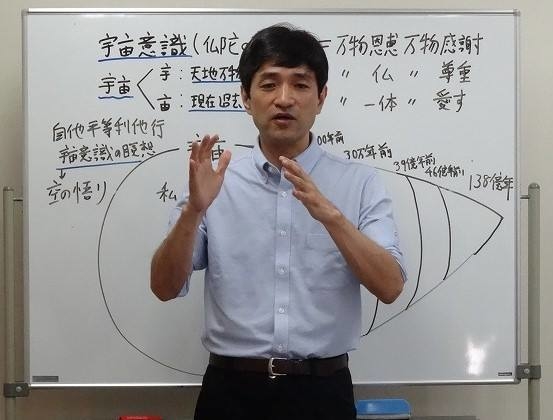 宇宙意識(仏陀の = 万物恩恵 万物感謝
宇宙 宇:天地万物 〃 仏 〃 尊重
宙:現在過去 〃 一体 〃 愛す
自他平等利他行
宇宙意識の瞑想
空の悟り
宇宙
私
00年前
30万年前
39億年前
46億年前
138億年